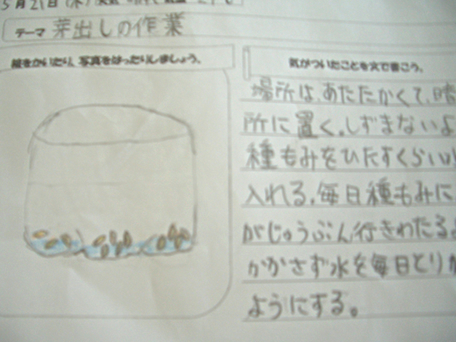 5月21日(木)
テーマ 芽出しの作業
絵をかいたり、写真をはったりしましょう。
気がついたことを文で書こう。
場所は、あたたかくて、暗
所に置く。しずまないよ
種もみをひたすくらい
入れる。毎日種もみに
がじゅうぶん行きわたるよ
かかさず水を毎日とりか
ようにする。